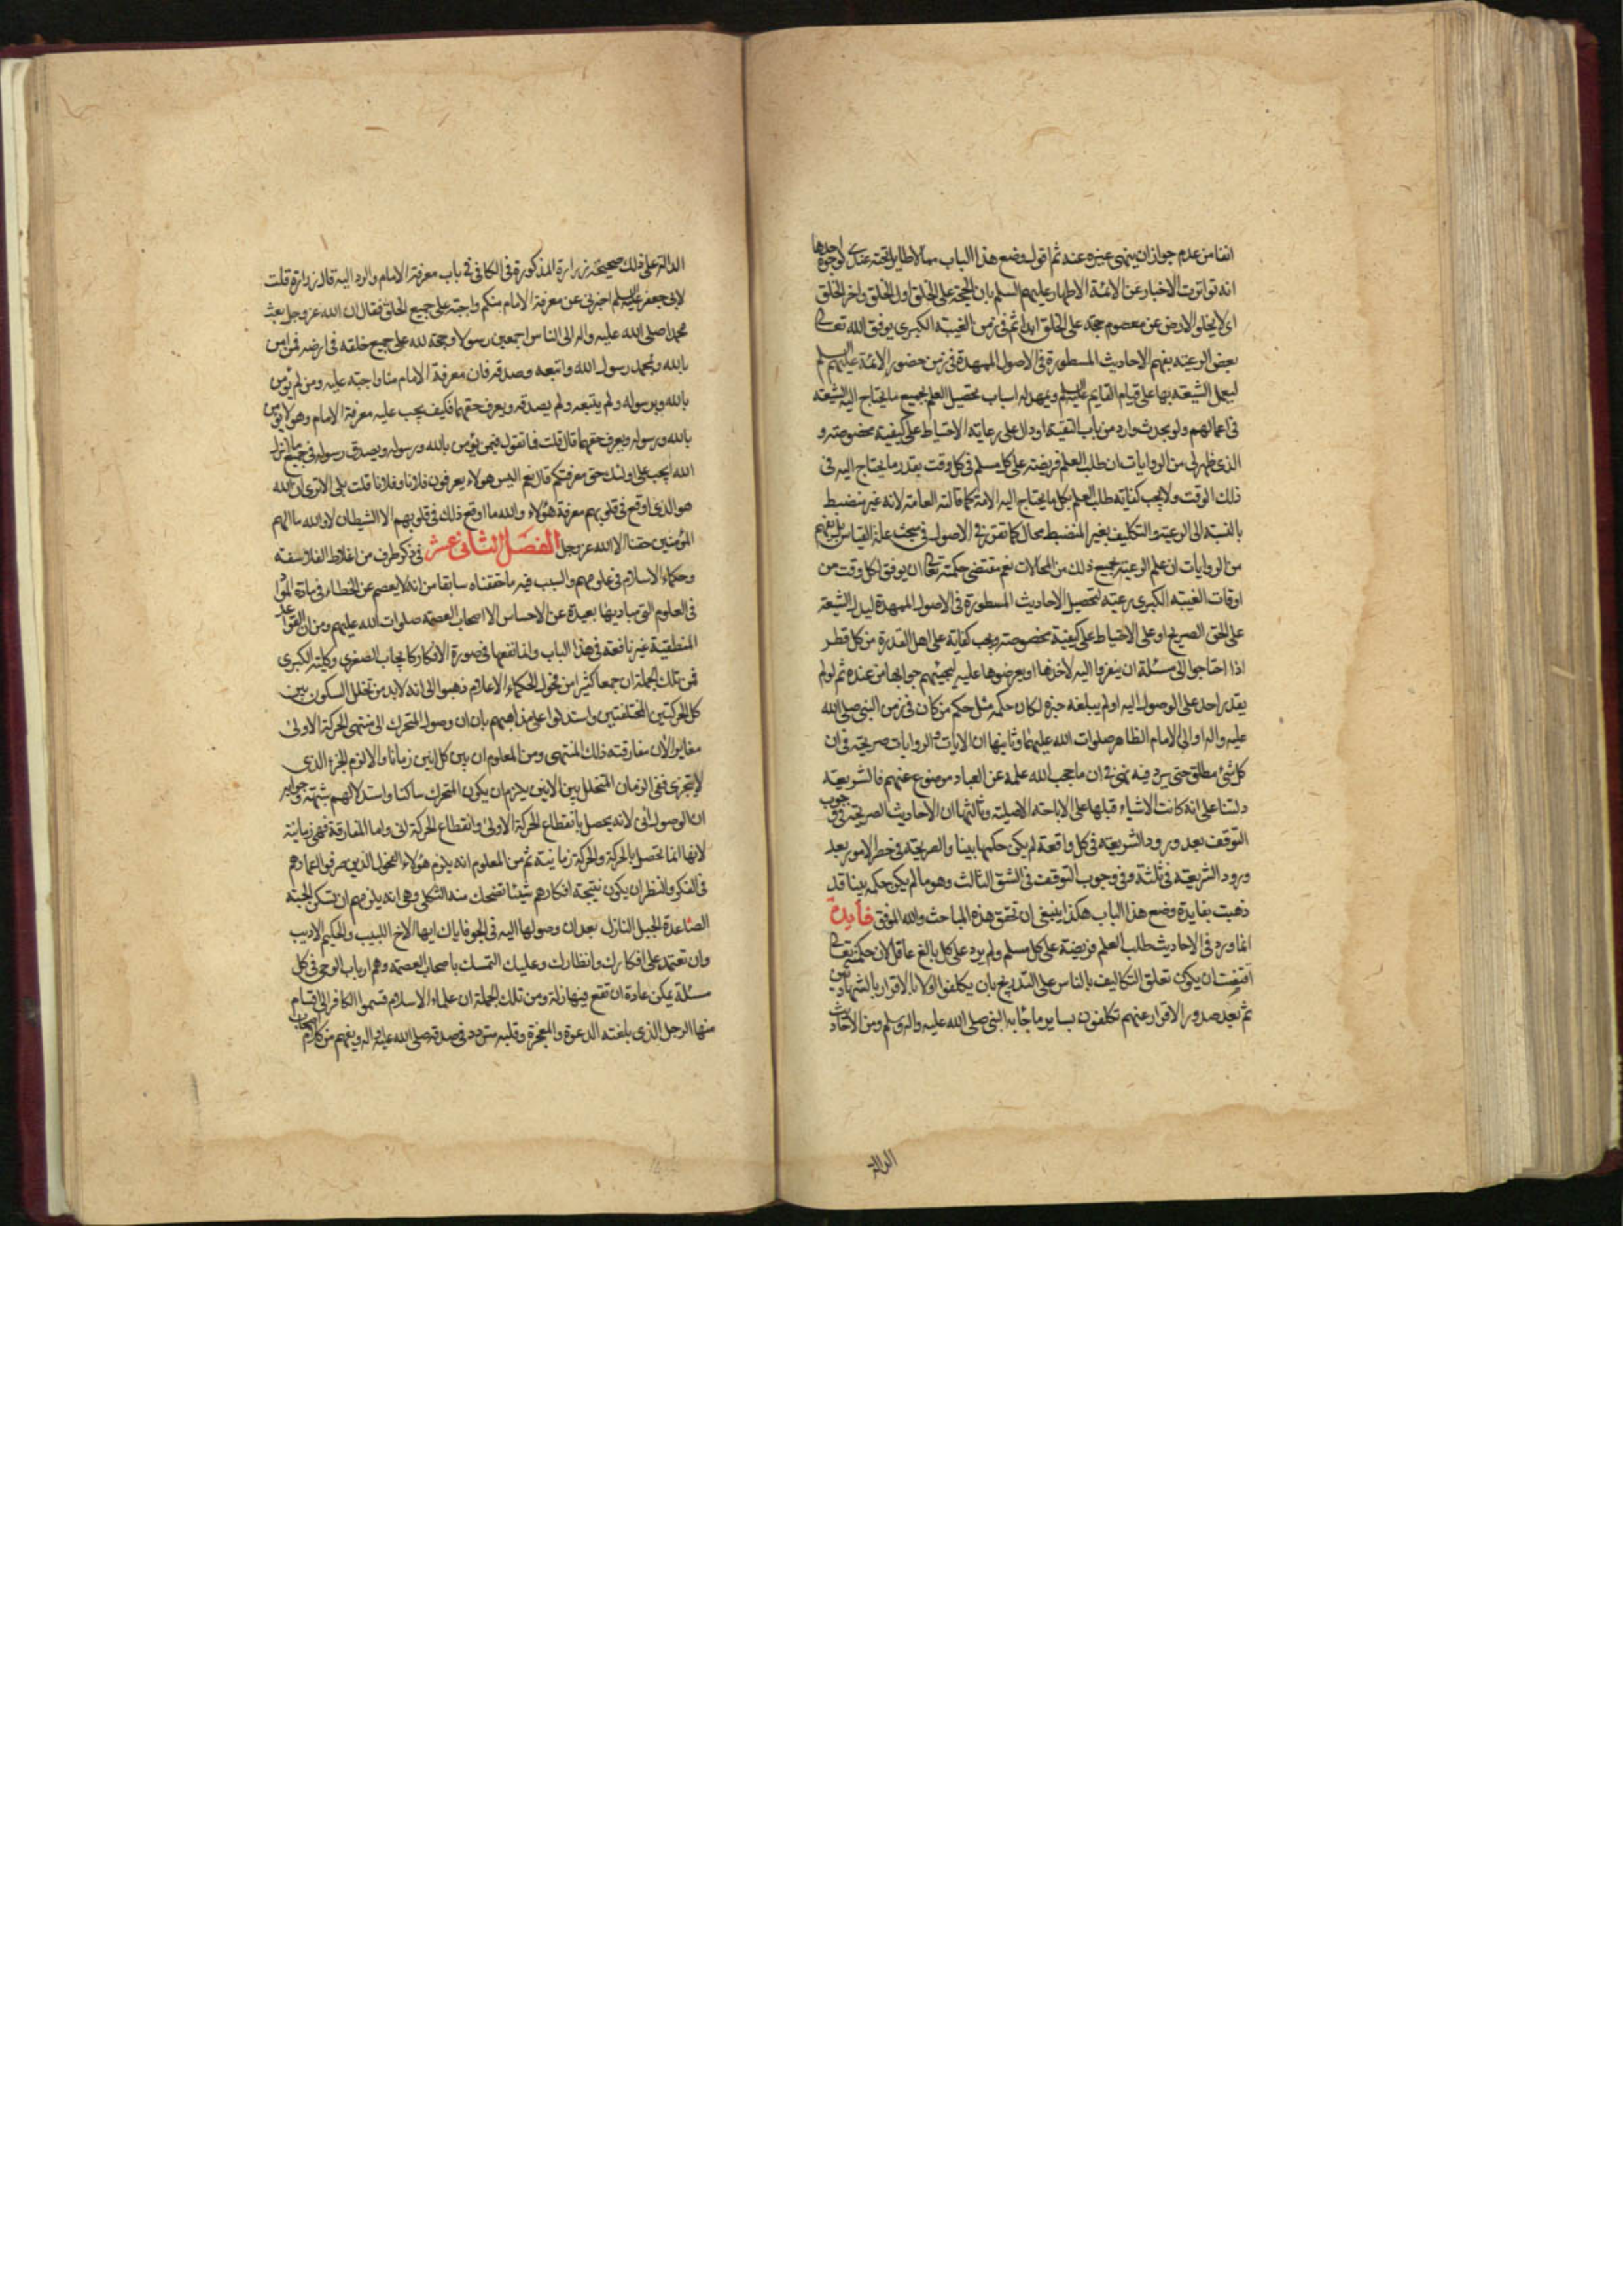 انفا من عدم جواز ان ينهى غيره عنه ثم اقول وضع هذا الباب مما لا طايل تحته عندى لوجوه احدها
انه تواترت الاخبار عن الائمة الاطهار عليهم السلم بان الحجة على الخلق اول الخلق واخر الخلق
اى لا يخلو الارض عن معصوم حجة على الخلق ابدا ثم فى زمن الغيبة الكبرى يوفق الله تعالى
بعض الرعية بفهم الاحاديث المسطورة فى الاصول الممهدة فى زمن حضور الائمة عليهم السلم
ليعمل الشيعة بها على قيام القايم عليه السلم ويمهد له اسباب تحصيل العلم بجميع ما يحتاج اليه الشيعة
فى اعمالهم ولو بحديث وارد من باب التقية او دال على رعاية الاحتياط على كيفية مخصوصة و
الذى ظهر لى من الروايات ان طلب العلم فريضة على كل مسلم فى كل وقت بقدر ما يحتاج اليه فى
ذلك الوقت ولا يجب كفاية طلب العلم بكل ما يحتاج اليه الامة كما قالته العامة لانه غير منضبط
بالنسبة الى الرعية والتكليف بغير المنضبط محال كما تقرر فى الاصول فى مبحث علة القياس بل يفهم
من الروايات ان علم الرعية بجميع ذلك من المحالات نعم مقتضى حكمته تعالى ان يوفق لكل وقت من
اوقات الغيبة الكبرى رعية لتحصيل الاحاديث المسطورة فى الاصول الممهدة ليدل الشيعة
على الحق الصريح او على الاحتياط على كيفية مخصوصة ويجب كفاية على اهل القدرة من كل قطر
اذا احتاجوا الى مسئلة ان ينفروا اليه لاخذها او يعرضوها عليه ليجيئهم جوابها من عنده ثم لو لم
يقدر احد على الوصول اليه او لم يبلغه خبره لكان حكمه مثل حكم من كان فى زمن النبى صلى الله
عليه واله او الى الامام الظاهر صلوات الله عليهما وثانيها ان الايات والروايات صريحة فى ان
كل شئ مطلق حتى يرد فيه نهى وفى ان ما حجب الله علمه عن العباد موضوع عنهم فالشريعة
دلتنا على انه كانت الاشياء قبلها على الاباحة الاصلية وثالثها ان الاحاديث الصريحة فى وجوب
التوقف بعد ورود الشريعة فى كل واقعة لم يكن حكمها بينا والصريحة فى حصر الامور بعد
ورود الشريعة فى ثلثة وفى وجوب التوقف فى الشق الثالث وهو ما لم يكن حكمه بينا قد
ذهبت بفايدة وضع هذا الباب هكذا ينبغى ان تحقق هذه المباحث والله الموفق فايدة
انما ورد فى الاحاديث طلب العلم فريضة على كل مسلم ولم يرد على كل بالغ عاقل لان حكمته تعالى
اقتضت ان يكون تعلق التكاليف بالناس على التدريج بان يكلفوا اولا بالاقرار بالشهادتين
ثم بعد صدور الاقرار عنهم تكلفون بساير ما جاء به النبى صلى الله عليه واله وسلم ومن الاحاديث
الدالة
الدالة على ذلك صحيحة زرارة المذكورة فى الكافى فى باب معرفة الامام والرد اليه قال زرارة قلت
لابى جعفر عليه السلم اخبرنى عن معرفة الامام منكم واجبة على جميع الخلق فقال ان الله عز وجل بعث
محمدا صلى الله عليه واله الى الناس اجمعين رسولا وحجة لله على جميع خلقه فى ارضه فمن امن
بالله وبمحمد رسول الله واتبعه وصدقه فان معرفة الامام منا واجبة عليه ومن لم يؤمن
بالله وبرسوله ولم يتبعه ولم يصدقه ويعرف حقهما فكيف يجب عليه معرفة الامام وهو لا يؤمن
بالله ورسوله ويعرف حقهما قال قلت فما تقول فيمن يؤمن بالله ورسوله ويصدق رسوله فى جميع ما انزل
الله ايجب على اولئك حق معرفتكم قال نعم اليس هولاء يعرفون فلانا وفلانا قلت بلى قال اترى ان الله
هو الذى اوقع فى قلوبهم معرفة هؤلاء والله ما اوقع ذلك فى قلوبهم الا الشيطان لا والله ما الهم
المؤمنين حقنا الا الله عز وجل الفصل الثانى عشر فى ذكر طرف من اغلاط الفلاسفة
وحكماء الاسلام فى علومهم والسبب فيه ما حققناه سابقا من انه لا يعصم عن الخطاء فى مادة المواد
فى العلوم التى مباديها بعيدة عن الاحساس الا اصحاب العصمة صلوات الله عليهم ومن ان القواعد
المنطقية غير نافعة فى هذا الباب وانما نفعها فى صورة الافكار كايجاب الصغرى وكلية الكبرى
فمن تلك الجملة ان جمعا كثيرا من فحول الحكماء الاعلام ذهبوا الى انه لابد من تخلل السكون بين
كل الحركتين المختلفتين واستدلوا على مذاهبهم بان ان وصول المتحرك الى منتهى الحركة الاولى
مغاير لان مفارقته ذلك المنتهى ومن المعلوم ان بين كل انين زمانا والا لزم الجزء الذى
لا يتجزى ففى الزمان المتخلل بين الانين يلزم ان يكون المتحرك ساكنا واستدلالهم شبهة وجوابه
ان الوصول انى لانه يحصل بانقطاع الحركة الاولى وانقطاع الحركة انى واما المفارقة فهى زمانية
لانها انما تحصل بالحركة والحركة زمانية ثم من المعلوم انه يلزم هؤلاء الفحول الذين صرفوا اعمارهم
فى الفكر والنظر ان يكون نتيجة افكارهم شيئا تضحك منه الثكلى وهى انه يلزمهم ان تسكن الحبة
الصاعدة الجبل النازل بعد ان وصولها اليه فى الجو فاياك ايها الاخ اللبيب والحكيم الاديب
وان تعتمد على افكارك وانظارك وعليك التمسك باصحاب العصمة وهم ارباب الوحى فى كل
مسئلة يمكن عادة ان تقع فيها زلة ومن تلك الجملة ان علماء الاسلام قسموا الكافر الى اقسام
منها الرجل الذى بلغته الدعوة والمعجزة وقلبه متردد فى صدقه صلى الله عليه واله ويفهم من كلام اصحاب